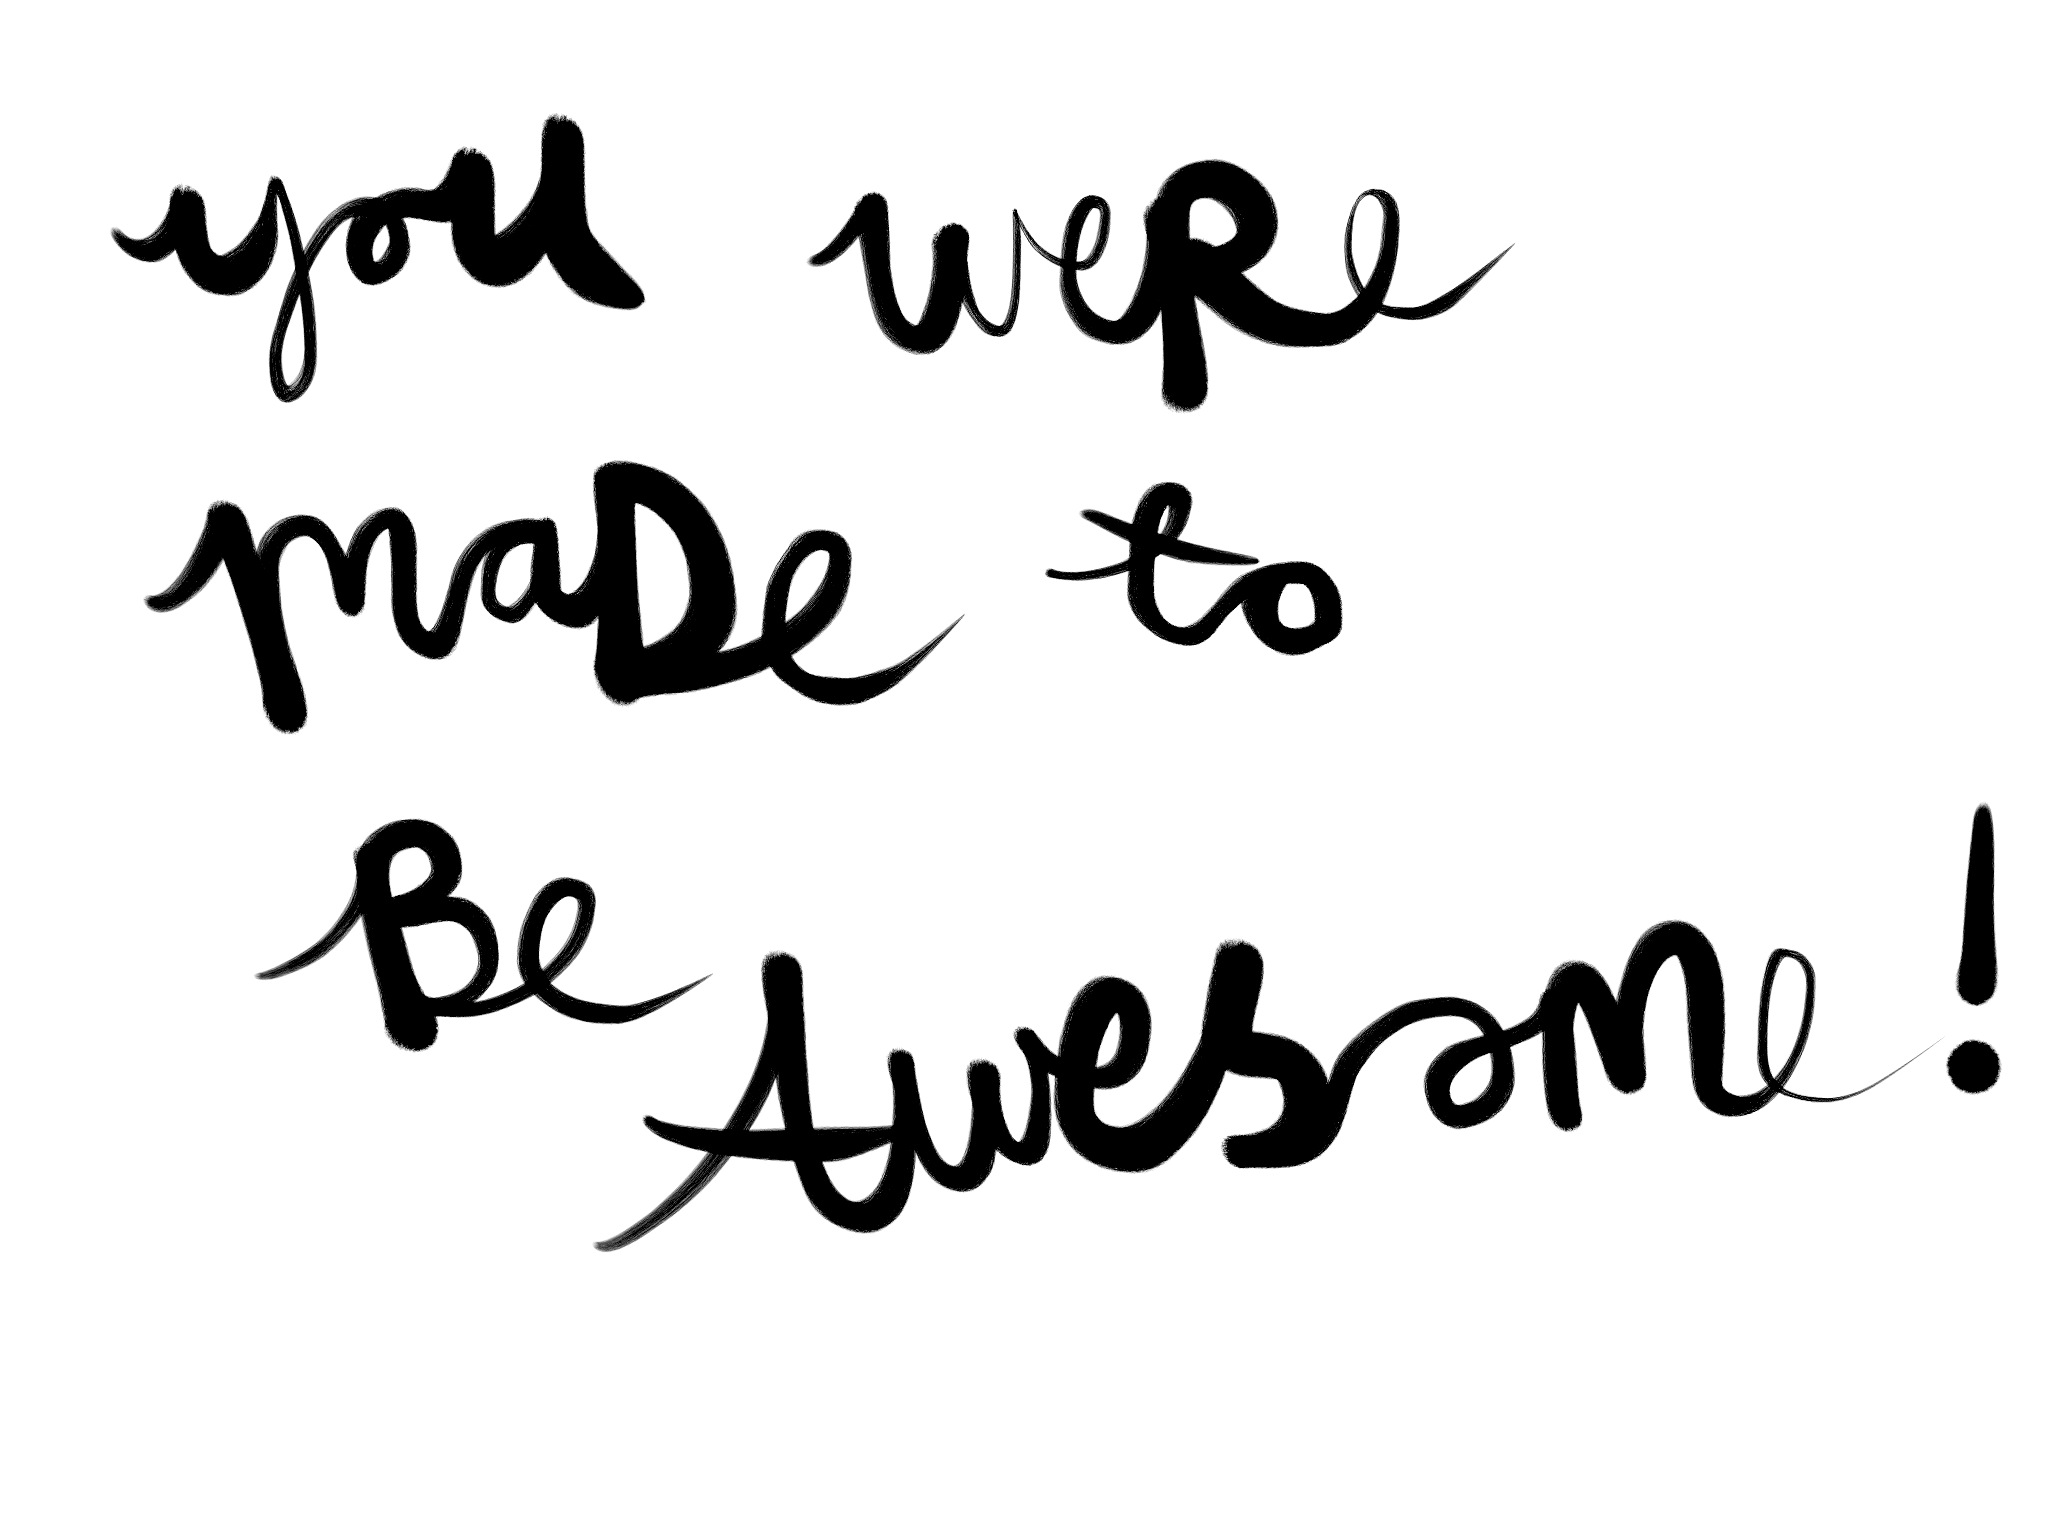 you weRe
maDe to
Be Awesome!